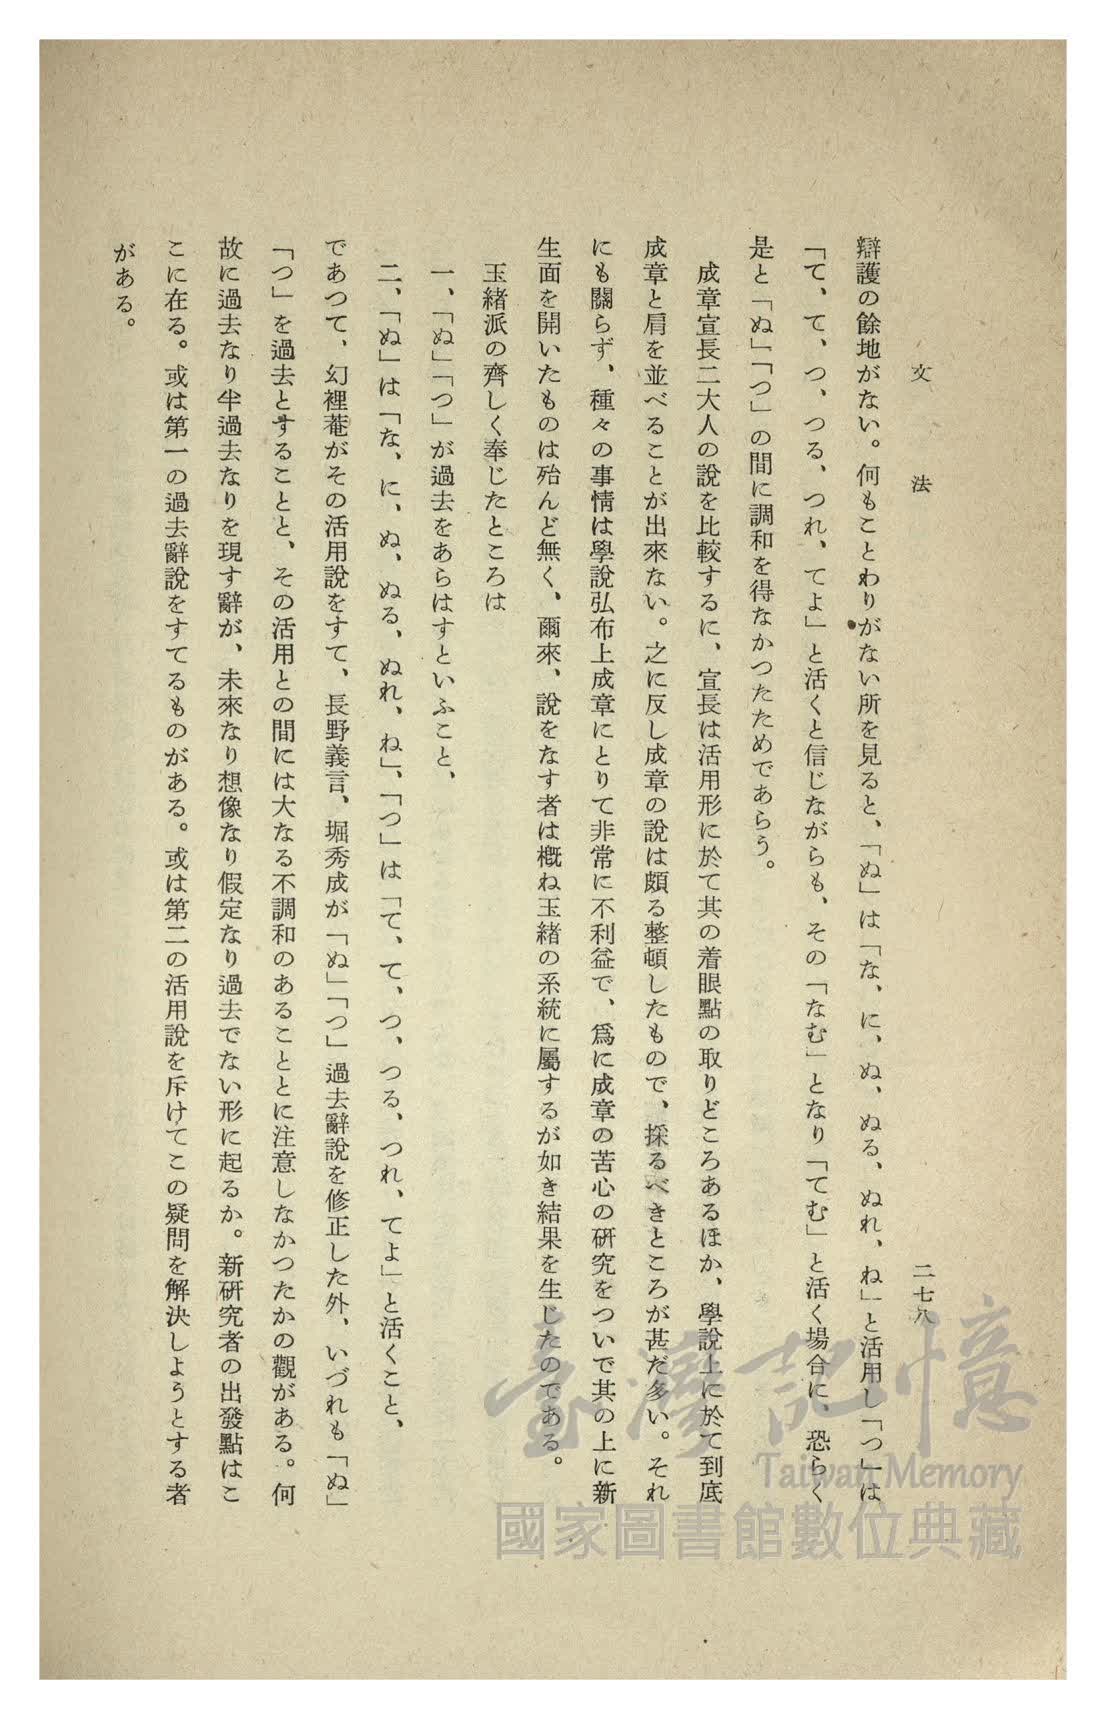 文法
二七八
辯護の餘地がない。何もことわりがない所を見ると、「ぬ」は「な、に、ぬ、ぬる、ぬれ、ね」と活用し「つ」は
「て、て、つ、つる、つれ、てよ」と活くと信じながらも、その「なむ」となり「てむ」と活く場合に、恐らく
是と「ぬ」「つ」の間に調和を得なかつたためであらう。
成章宣長二大人の說を比較するに、宣長は活用形に於て其の着眼點の取りどころあるほか、學說上に於て到底
成章と肩を並べることが出來ない。之に反し成章の說は頗る整頓したもので、採るべきところが甚だ多い。それ
にも關らず、種々の事情は學說弘布上成章にとりて非常に不利益で、爲に成章の苦心の硏究をついで其の上に新
生面を開いたものは殆んど無く、爾來、說をなす者は概ね玉緖の系統に屬するが如き結果を生じたのである。
玉緖派の齊しく奉じたところは
一、「ぬ」「つ」が過去をあらはすといふこと、
二、「ぬ」は「な、に、ぬ、ぬる、ぬれ、ね」、「つ」は「て、て、つ、つる、つれ、てよ」と活くこと、
であつて、幻裡菴がその活用說をすて、長野義言、堀秀成が「ぬ」「つ」過去辭說を修正した外、いづれも「ぬ」
「つ」を過去とすることと、その活用との間には大なる不調和のあることとに注意しなかつたかの觀がある。何
故に過去なり半過去なりを現す辭が、未來なり想像なり假定なり過去でない形に起るか。新硏究者の出發點はこ
こに在る。或は第一の過去辭說をすてるものがある。或は第二の活用說を斥けてこの疑問を解決しようとする者
がある。
臺灣記憶
Taiwan Memory
國家圖書館數位典藏